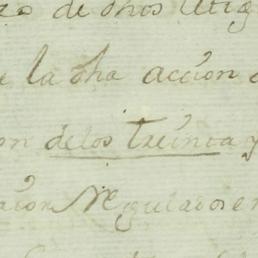 de dhos litig
la dha acción
on delos treinta y
ación Regulados en